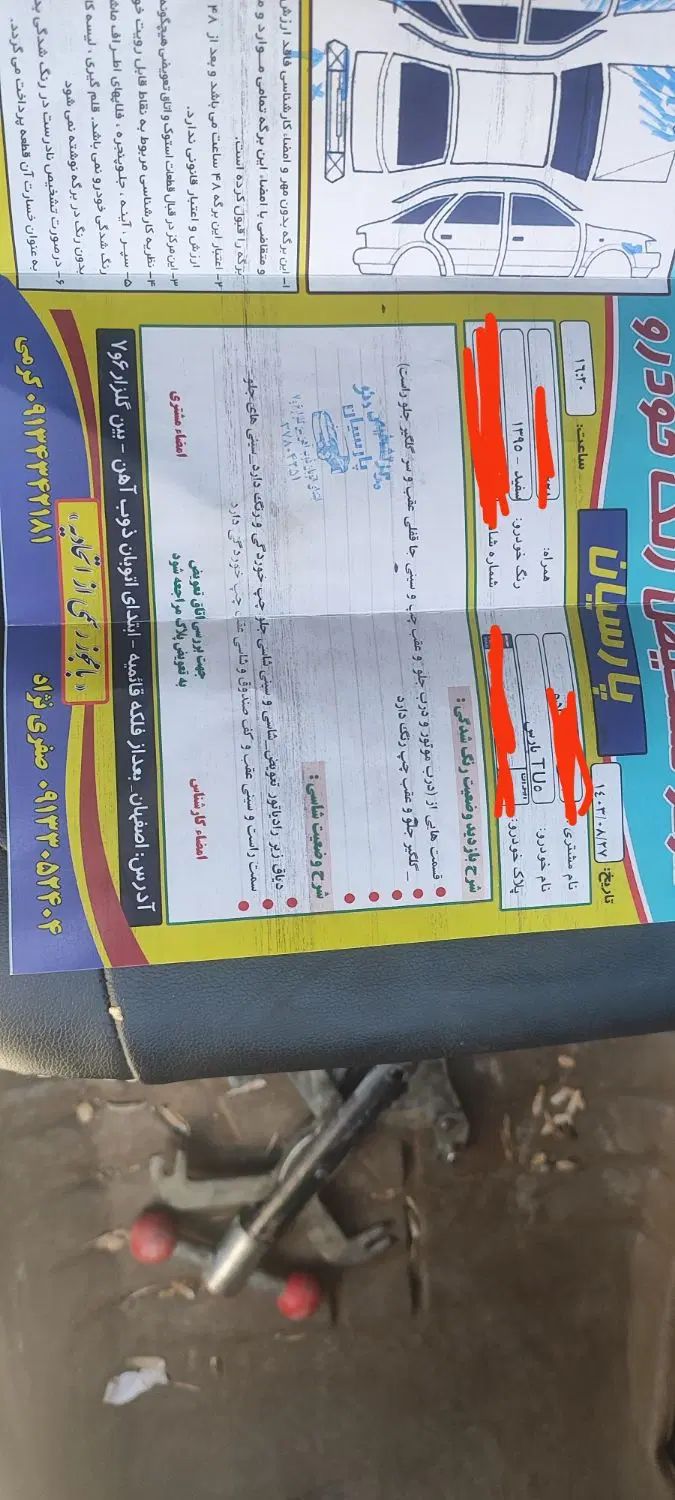 خودرو
پارسیان
تاریخ: ۱۴۰۳/۰۸/۲۷
ساعت: ۱۶:۲۰
نام مشتری
همراه:
نام خودرو: پارس TU۵
رنگ خودرو: سفید - ۱۳۹۵
پلاک خودرو:
شماره شا
شرح بازدید وضعیت رنگ شدگی:
قسمت هایی از (درب موتور و درب جلو و عقب چپ و سینی جا قفلی عقب و سر گلگیر جلو راست)
_ گلگیر جلو و عقب چپ رنگ دارد
مرکز تشخیص رنگ
پارسیان
شرح وضعیت شاسی:
دیاق زیر رادیاتور تعویض_شاسی و سینی شاسی جلو چپ خوردگی و رنگ دارد_سینی های جلو
سمت راست و سینی عقب و کف صندوق و شاسی عقب چپ خوردگی دارد
امضاء کارشناس
جهت بررسی اتاق تعویض
به تعویض پلاک مراجعه شود
امضاء مشتری
آدرس: اصفهان_ بعد از فلکه قائمیه - ابتدای اتوبان ذوب آهن - بین گلزار ۶و۷
«با مجوز رسمی از اتحادیه»
صفری نژاد ۰۹۱۳۳۰۵۲۴۰۴
۰۹۱۳۴۳۴۲۱۸۱ کرمی
۱- این برگه بدون مهر و امضاء کارشناسی فاقد ارزش
و متقاضی با امضاء این برگه تمامی موارد و
برگه را قبول کرده است.
۲- اعتبار این برگه ۴۸ ساعت می باشد و بعد از ۴۸
ارزش و اعتبار قانونی ندارد.
۳- این مرکز در قبال قطعات استوک و اتاق تعویضی هیچگونه
۴- نظریه کارشناسی مربوط به نقاط قابل رویت
۵- سپر، آینه، جلوپنجره، قلابهای اطراف
رنگ شدگی خودرو نمی باشد. قلم گیری، لیسه
بدون رنگ در برگه نوشته نمی شود
۶- درصورت تشخیص نادرست در رنگ شدگی
به عنوان خسارت آن قطعه پرداخت می گردد.